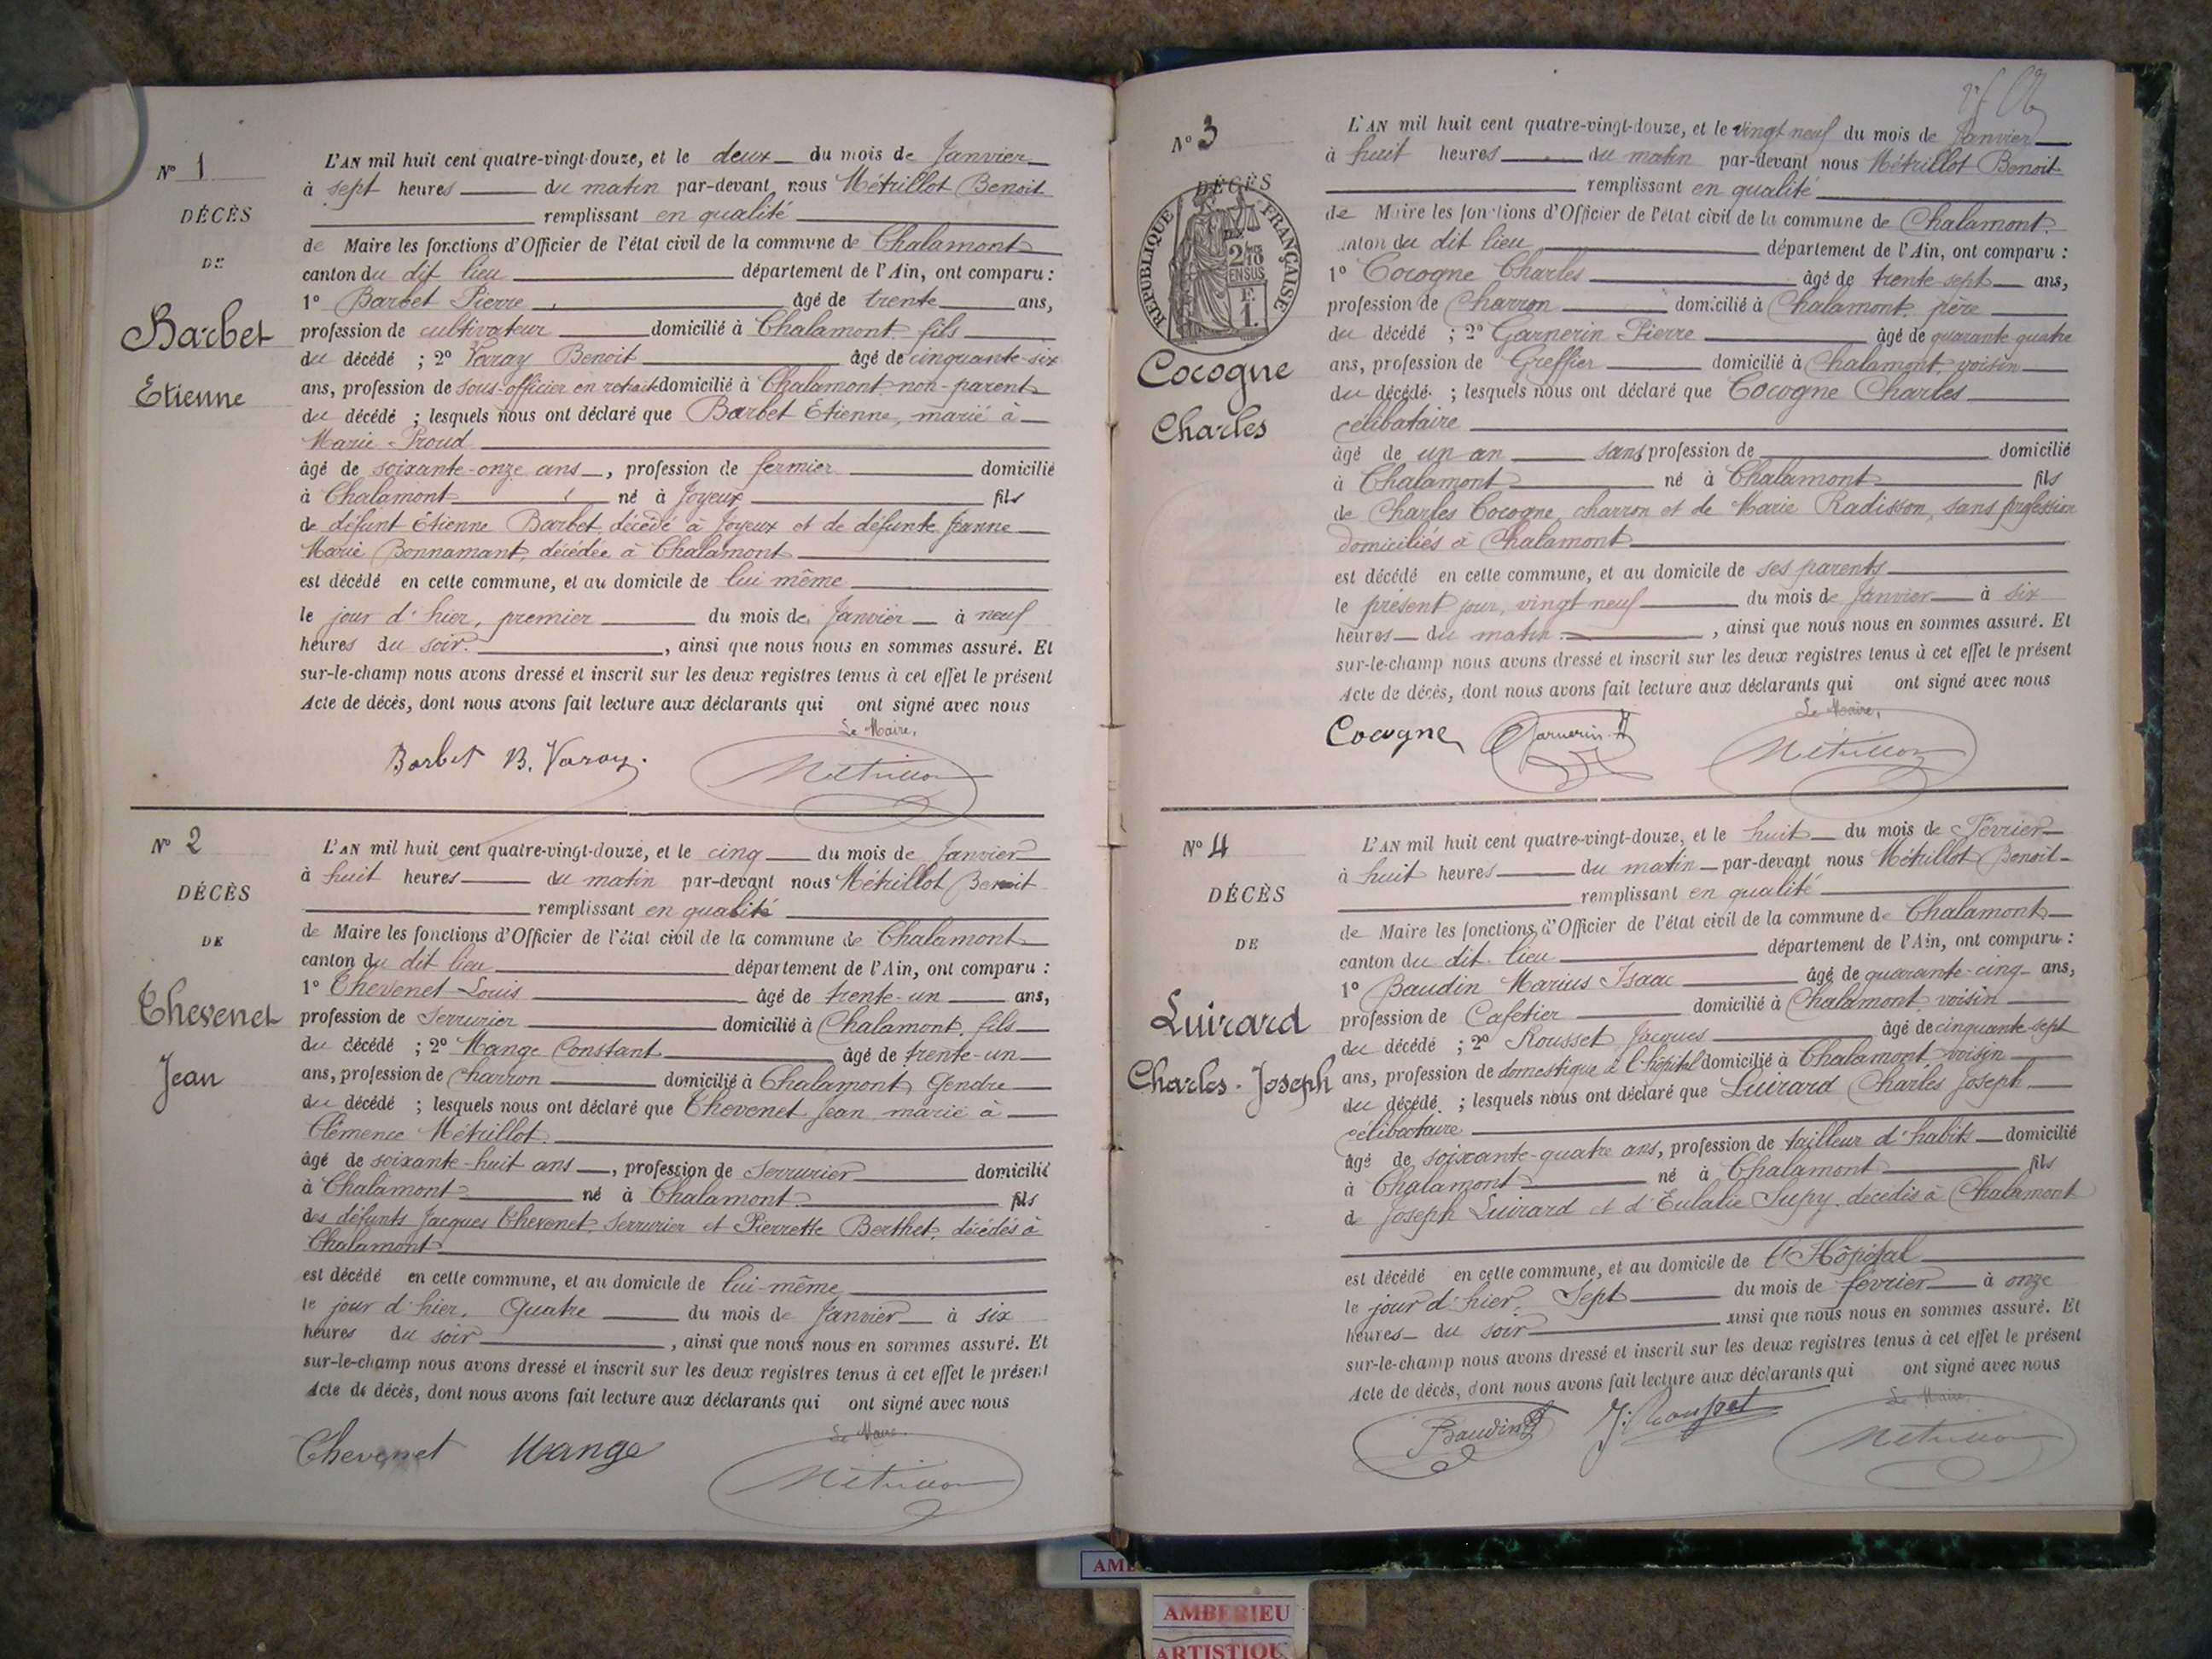 N° 1
DÉCÈS
DE
Barbet
Etienne
L'AN mil huit cent quatre-vingt-douze, et le deux du mois de Janvier
à sept heures du matin par-devant nous Métrillot Benoit
remplissant en qualité
de Maire les fonctions d'Officier de l'état civil de la commune de Chalamont
canton du dit lieu département de l'Ain, ont comparu :
1° Barbet Pierre âgé de trente ans,
profession de cultivateur domicilié à Chalamont fils
du décédé ; 2° Varay Benoit âgé de cinquante-six
ans, profession de sous-officier en retraite domicilié à Chalamont non-parent
du décédé ; lesquels nous ont déclaré que Barbet Etienne, marié à
Marie Proud
âgé de soixante-onze ans, profession de fermier domicilié
à Chalamont né à Joyeux fils
de défunt Etienne Barbet, décédé à Joyeux et de défunte Jeanne
Marie Bonnamant, décédée à Chalamont
est décédé en cette commune, et au domicile de lui même
le jour d'hier, premier du mois de Janvier à neuf
heures du soir, ainsi que nous nous en sommes assuré. Et
sur-le-champ nous avons dressé et inscrit sur les deux registres tenus à cet effet le présent
Acte de décès, dont nous avons fait lecture aux déclarants qui ont signé avec nous
Le Maire,
Barbet B. Varay. Métrillot
N° 2
DÉCÈS
DE
Chevenet
Jean
L'AN mil huit cent quatre-vingt-douze, et le cinq du mois de Janvier
à huit heures du matin par-devant nous Métrillot Benoit
remplissant en qualité
de Maire les fonctions d'Officier de l'état civil de la commune de Chalamont
canton du dit lieu département de l'Ain, ont comparu :
1° Chevenet Louis âgé de trente-un ans,
profession de Serrurier domicilié à Chalamont, fils
du décédé ; 2° Mange Constant âgé de trente-un
ans, profession de charron domicilié à Chalamont, Gendre
du décédé ; lesquels nous ont déclaré que Chevenet Jean marié à
Clémence Métrillot.
âgé de soixante-huit ans, profession de Serrurier domicilié
à Chalamont né à Chalamont fils
des défunts Jacques Chevenet, Serrurier et Pierrette Berthet, décédés à
Chalamont
est décédé en cette commune, et au domicile de lui-même
le jour d'hier, Quatre du mois de Janvier à six
heures du soir, ainsi que nous nous en sommes assuré. Et
sur-le-champ nous avons dressé et inscrit sur les deux registres tenus à cet effet le présent
Acte de décès, dont nous avons fait lecture aux déclarants qui ont signé avec nous
Le Maire.
Chevenet Mange Métrillot
N° 3
DÉCÈS
RÉPUBLIQUE FRANÇAISE
2/10 EN SUS
F. 1.
Cocogne
Charles
L'AN mil huit cent quatre-vingt-douze, et le vingt neuf du mois de Janvier
à huit heures du matin par-devant nous Métrillot Benoit
remplissant en qualité
de Maire les fonctions d'Officier de l'état civil de la commune de Chalamont
canton du dit lieu département de l'Ain, ont comparu :
1° Cocogne Charles âgé de trente-sept ans,
profession de Charron domicilié à Chalamont, père
du décédé ; 2° Garnerin Pierre âgé de quarante quatre
ans, profession de Greffier domicilié à Chalamont, voisin
du décédé ; lesquels nous ont déclaré que Cocogne Charles
célibataire
âgé de un an sans profession de domicilié
à Chalamont né à Chalamont fils
de Charles Cocogne, charron et de Marie Radisson, sans profession
domiciliés à Chalamont
est décédé en cette commune, et au domicile de ses parents
le présent jour, vingt neuf du mois de Janvier à six
heures du matin, ainsi que nous nous en sommes assuré. Et
sur-le-champ nous avons dressé et inscrit sur les deux registres tenus à cet effet le présent
Acte de décès, dont nous avons fait lecture aux déclarants qui ont signé avec nous
Le Maire,
Cocogne Garnerin Métrillot
N° 4
DÉCÈS
DE
Luirard
Charles-Joseph
L'AN mil huit cent quatre-vingt-douze, et le huit du mois de Février
à huit heures du matin par-devant nous Métrillot Benoit
remplissant en qualité
de Maire les fonctions d'Officier de l'état civil de la commune de Chalamont
canton du dit lieu département de l'Ain, ont comparu :
1° Baudin Marius Isaac âgé de quarante-cinq ans,
profession de Cafetier domicilié à Chalamont voisin
du décédé ; 2° Rousset Jacques âgé de cinquante sept
ans, profession de domestique à l'hôpital domicilié à Chalamont voisin
du décédé ; lesquels nous ont déclaré que Luirard Charles Joseph
célibataire
âgé de soixante-quatre ans, profession de tailleur d'habits domicilié
à Chalamont né à Chalamont fils
de Joseph Luirard et d'Eulalie Supy, décédés à Chalamont
est décédé en cette commune, et au domicile de l'Hôpital
le jour d'hier, Sept du mois de février à onze
heures du soir ainsi que nous nous en sommes assuré. Et
sur-le-champ nous avons dressé et inscrit sur les deux registres tenus à cet effet le présent
Acte de décès, dont nous avons fait lecture aux déclarants qui ont signé avec nous
Le Maire.
Baudin J. Rousset Métrillot
AMBERIEU
ARTISTIQU